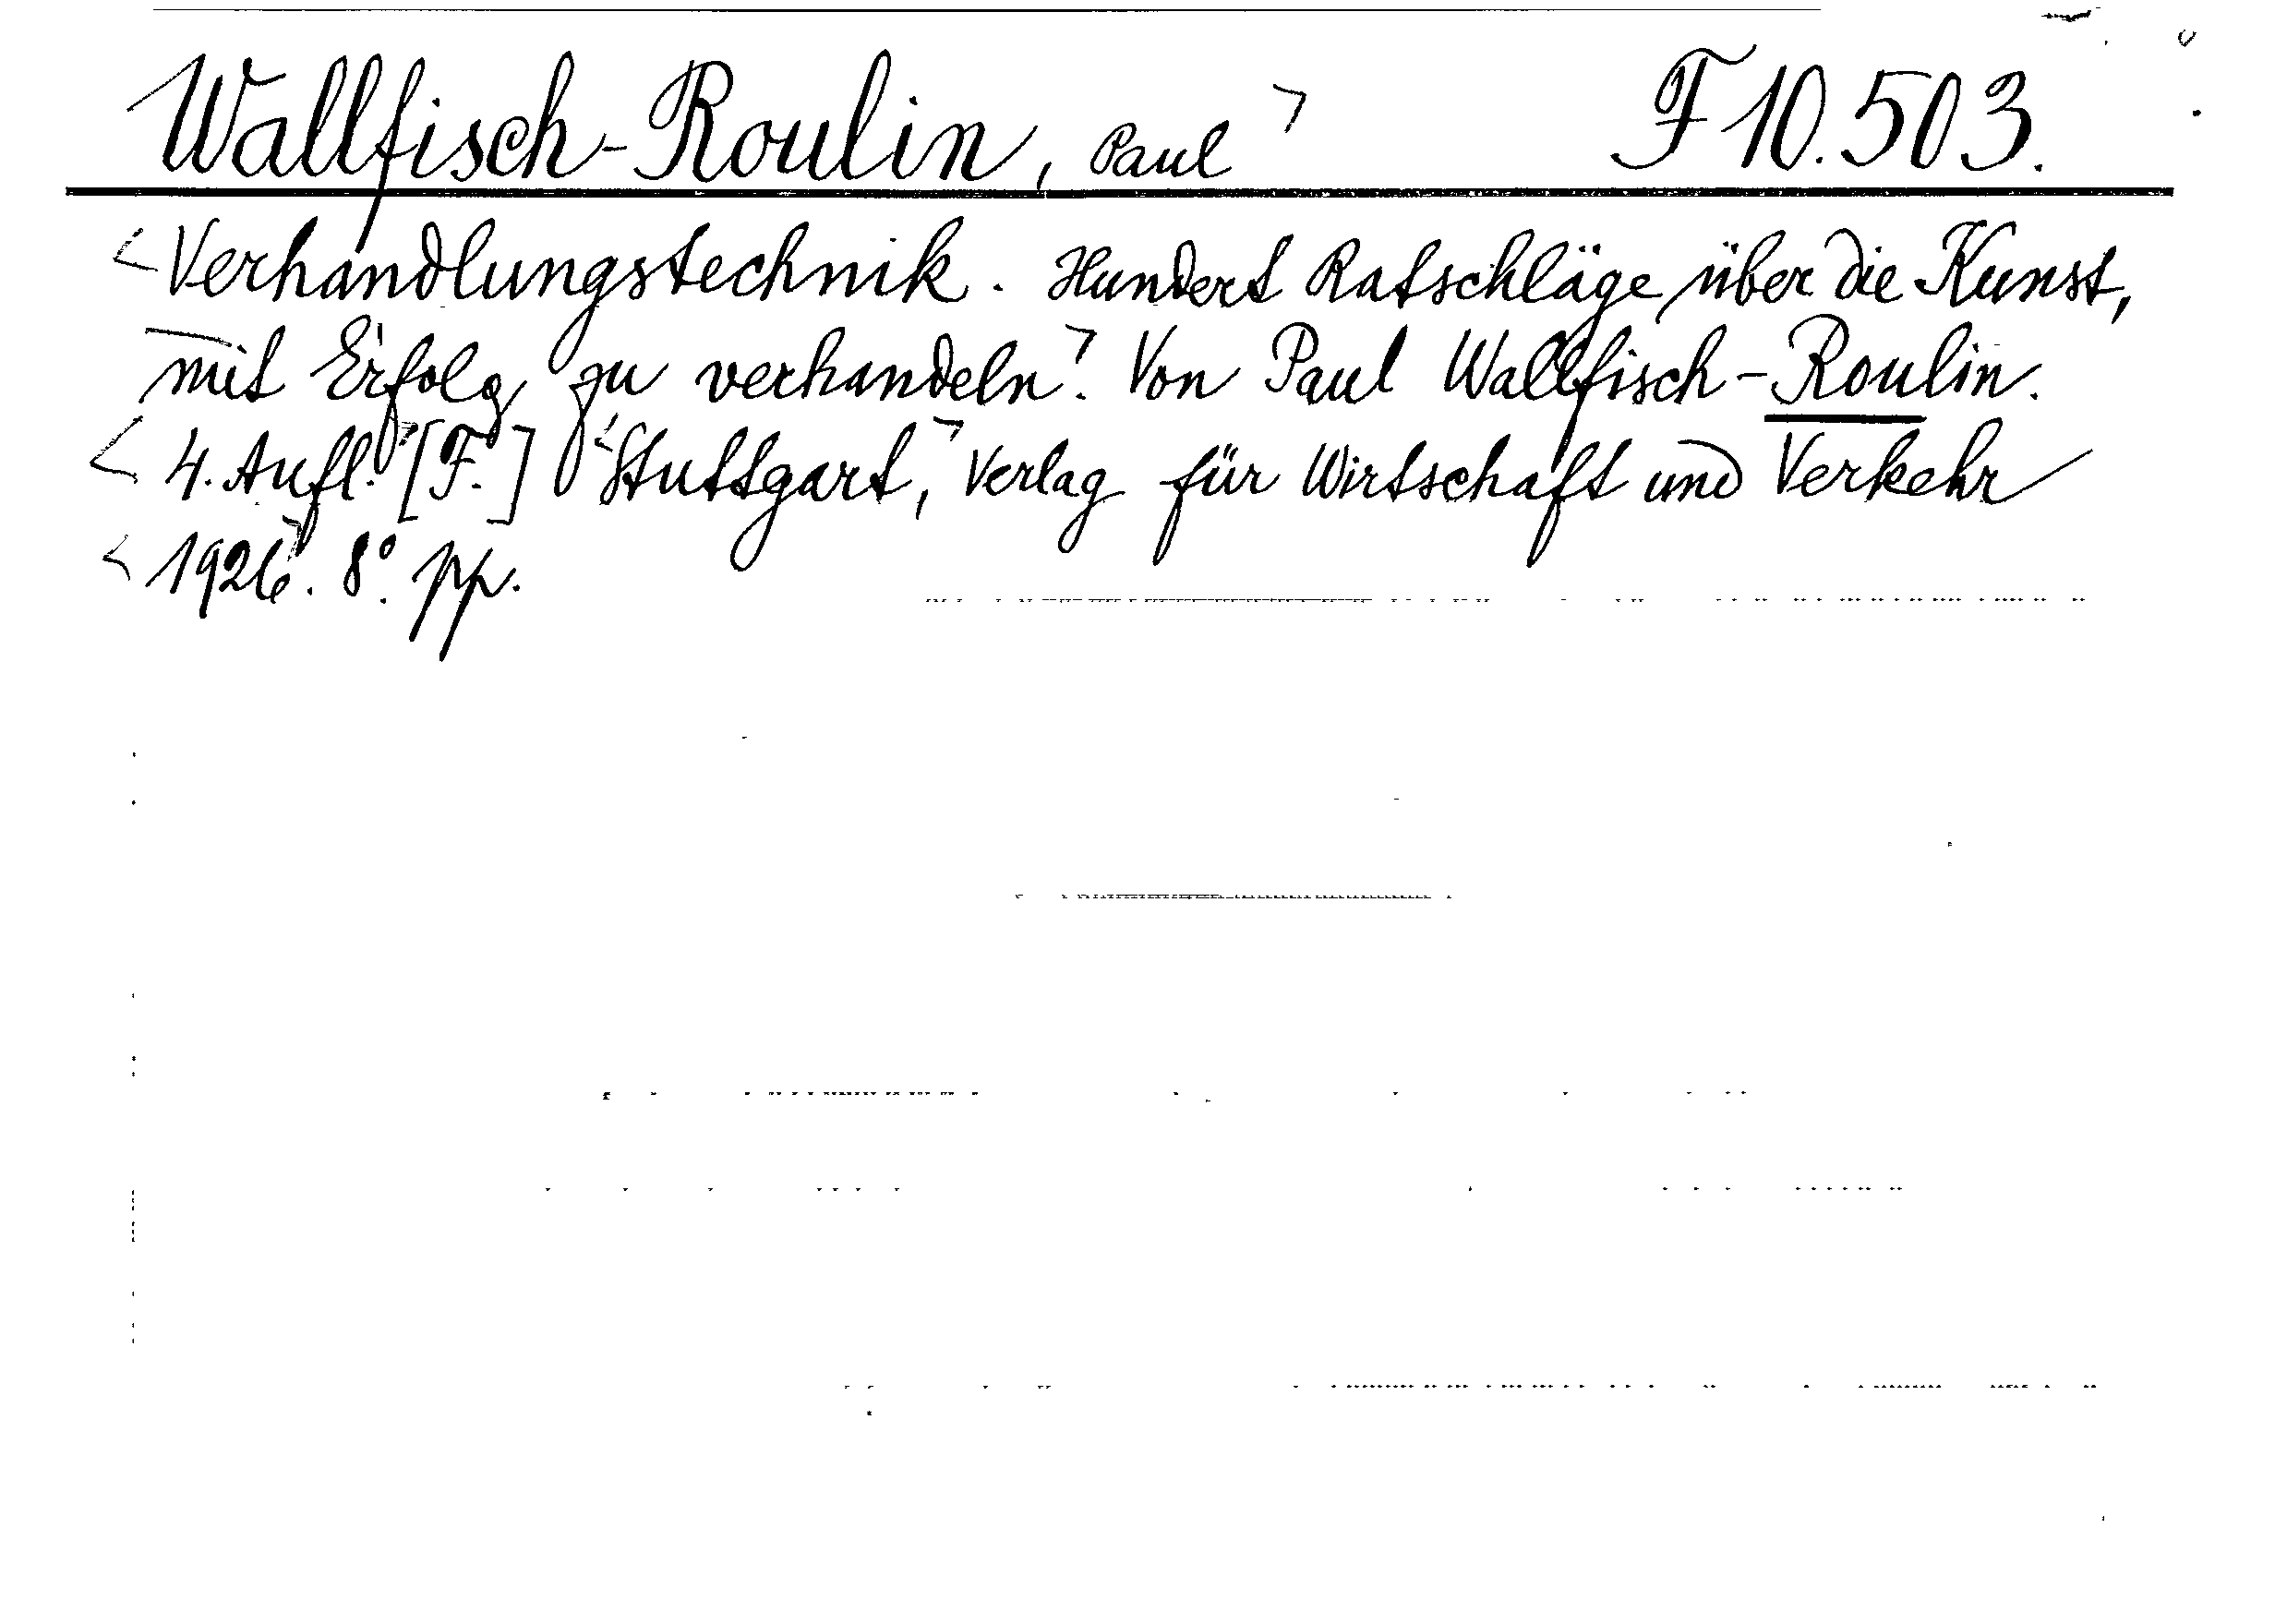 Wallfisch-Roulin, Paul F 10.503.
Verhandlungstechnik. Hundert Ratschläge über die Kunst,
mit Erfolg zu verhandeln. Von Paul Wallfisch-Roulin.
4. Aufl. [F.] Stuttgart, Verlag für Wirtschaft und Verkehr
1926. 8°. pp.